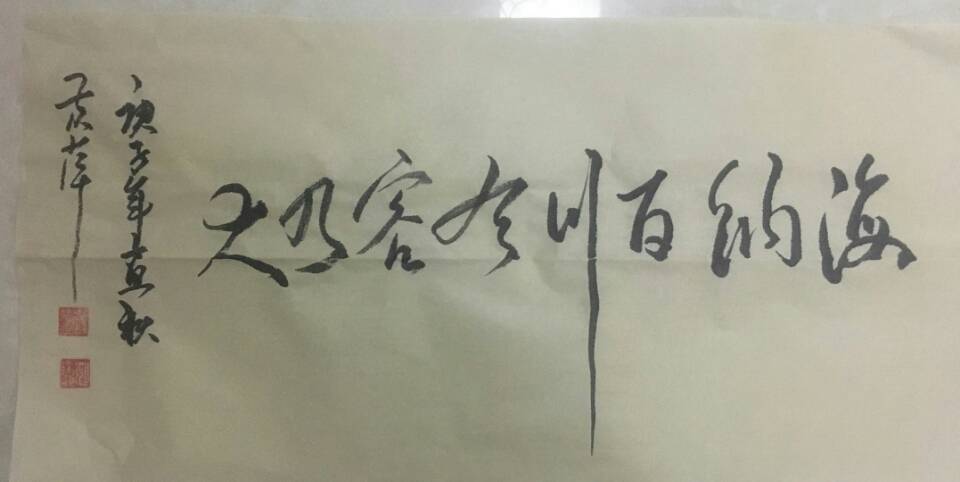 海纳百川有容乃大
庚子年孟秋